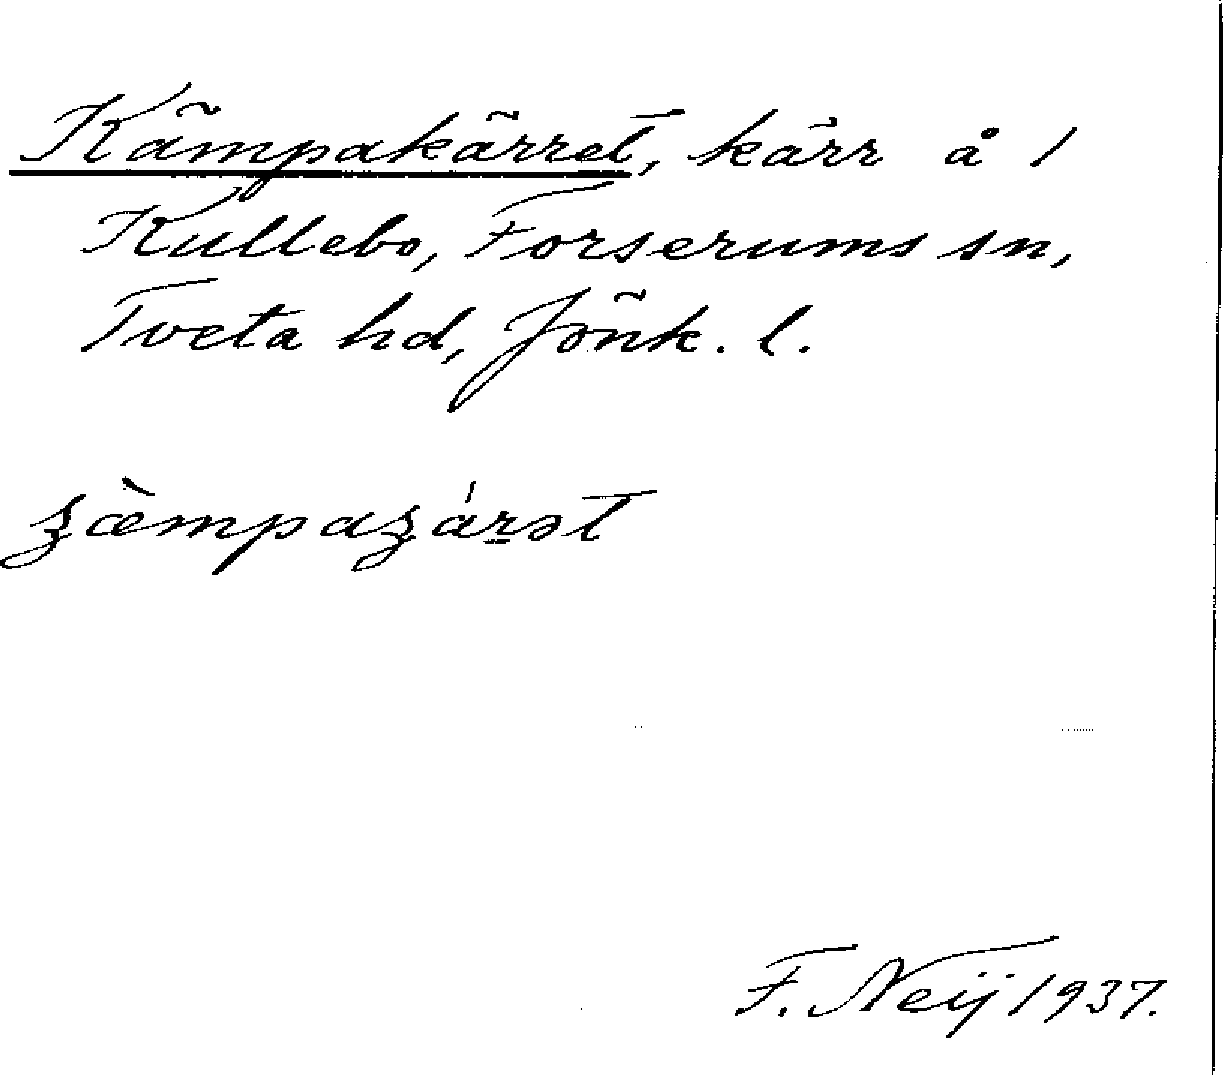 Kämpakärret, kärr å 1
Kullebo, Forserums sn,
Tveta hd, Jönk. l.
F. Neij 1937.